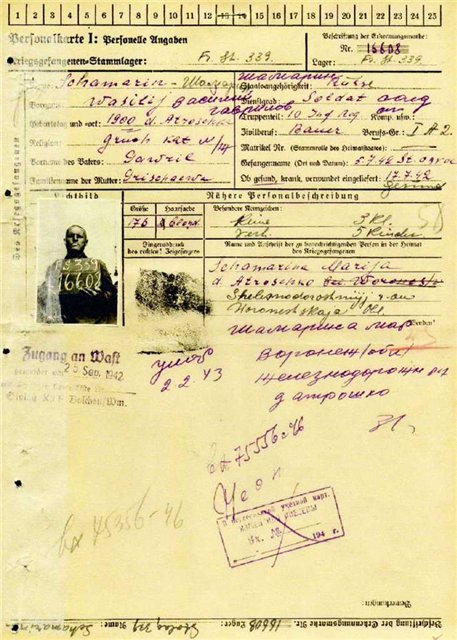 1 2 3 4 5 6 7 8 9 10 11 12 13 14 15 16 17 18 19 20 21 22 23 24 25
Personalkarte I: Personelle Angaben
Beschriftung der Erkennungsmarke
Kriegsgefangenen-Stammlager: Fr. St. 339.
Nr. 16608
Lager: Fr. St. 339.
Des Kriegsgefangenen
Name: Schamarin
Шамарин
Staatsangehörigkeit: Russe
Vorname: Wasilij Василий
Dienstgrad: Soldat
Truppenteil: 10 Inf. Reg. Komp. usw.
Geburtstag und -ort: 1900 d. Atroschko
Zivilberuf: Bauer Berufs-Gr.: I A 2.
Religion:
Matrikel Nr. (Stammrolle des Heimatstaates):
Vorname des Vaters: Gawril
Gefangennahme (Ort und Datum): 5.7.42
Familienname der Mutter: Grischaewa
Ob gesund, krank, verwundet eingeliefert: 17.7.42
gesund
Lichtbild
Nähere Personalbeschreibung
Größe Haarfarbe Besondere Kennzeichen:
176 blond Keine
verh. 5 Kinder
Fingerabdruck des rechten Zeigefingers
Name und Anschrift der zu benachrichtigenden Person in der Heimat des Kriegsgefangenen
St 339
16608
Schamarina Marija
d. Atroschko bei Woronesh
Shelesnodoroshnij
Woroneshskaja Obl.
Шамарина Мар
Воронеж. обл
Железнодорожн
д Атрошко
Zugang an Waft
25 Sep. 1942
умер
2.2.43
вх 75356-46
вх 75356-46
Вх. № 194 г.
Bemerkungen:
Beschriftung der Erkennungsmarke Nr. 16608 Lager: Stalag 339 Name: Schamarin